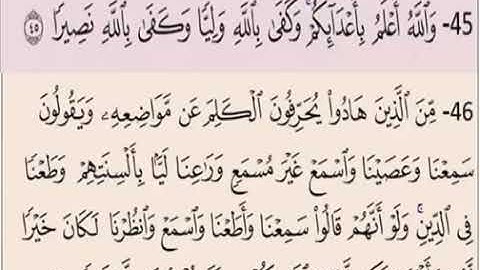 45- وَٱللَّهُ أَعۡلَمُ بِأَعۡدَآئِكُمۡۚ وَكَفَىٰ بِٱللَّهِ وَلِيّٗا وَكَفَىٰ بِٱللَّهِ نَصِيرٗا ٤٥
46- مِّنَ ٱلَّذِينَ هَادُواْ يُحَرِّفُونَ ٱلۡكَلِمَ عَن مَّوَاضِعِهِۦ وَيَقُولُونَ
سَمِعۡنَا وَعَصَيۡنَا وَٱسۡمَعۡ غَيۡرَ مُسۡمَعٖ وَرَٰعِنَا لَيَّۢا بِأَلۡسِنَتِهِمۡ وَطَعۡنٗا
فِي ٱلدِّينِۚ وَلَوۡ أَنَّهُمۡ قَالُواْ سَمِعۡنَا وَأَطَعۡنَا وَٱسۡمَعۡ وَٱنظُرۡنَا لَكَانَ خَيۡرٗا